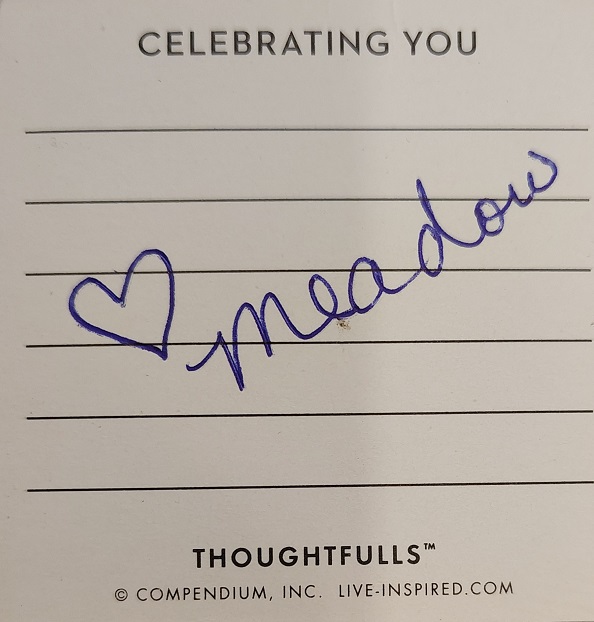 CELEBRATING YOU
meadow
THOUGHTFULLS™
© COMPENDIUM, INC. LIVE-INSPIRED.COM